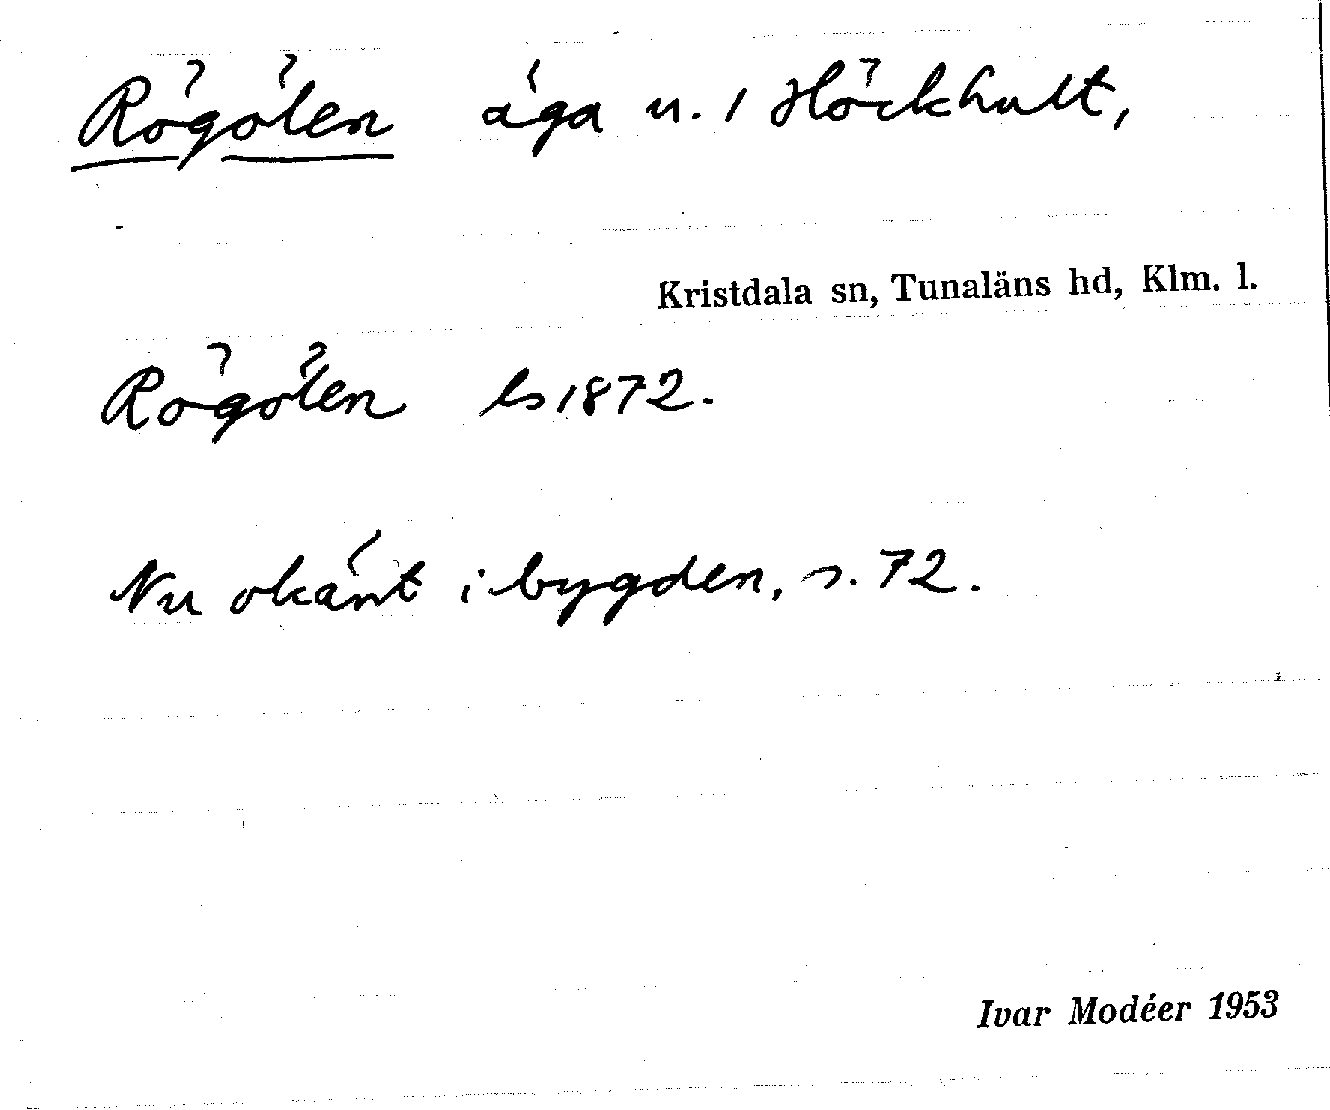 Rögölen äga n. 1 Höckhult,
Kristdala sn, Tunaläns hd, Klm. l.
Rögölen ls 1872.
Nu okänt i bygden, s. 72.
Ivar Modéer 1953